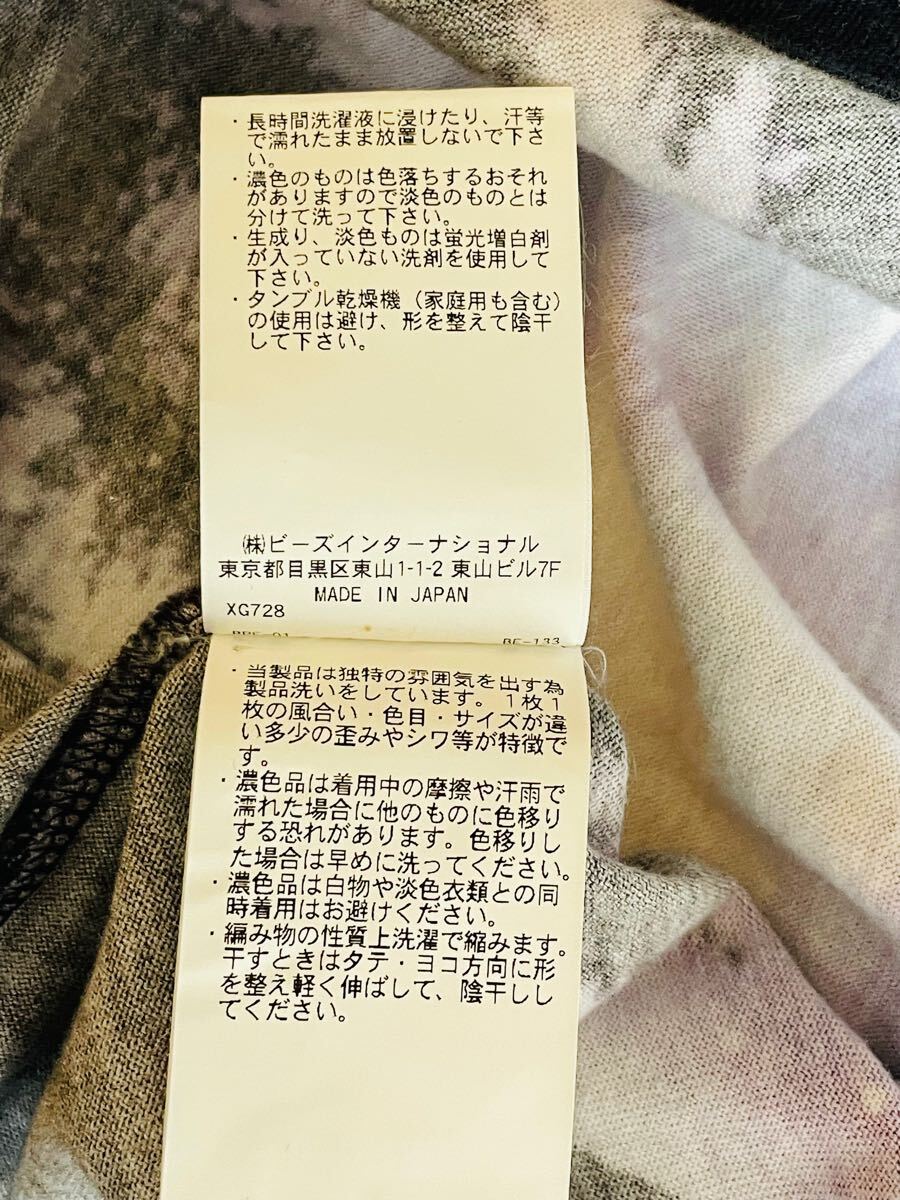 ・長時間洗濯液に浸けたり、汗等
で濡れたまま放置しないで下さ
い。
・濃色のものは色落ちするおそれ
がありますので淡色のものとは
分けて洗って下さい。
・生成り、淡色ものは蛍光増白剤
が入っていない洗剤を使用して
下さい。
・タンブル乾燥機（家庭用も含む）
の使用は避け、形を整えて陰干
して下さい。
㈱ビーズインターナショナル
東京都目黒区東山1-1-2 東山ビル7F
MADE IN JAPAN
XG728
BE-133
・当製品は独特の雰囲気を出す為
製品洗いをしています。1枚1
枚の風合い・色目・サイズが違
い多少の歪みやシワ等が特徴で
す。
・濃色品は着用中の摩擦や汗雨で
濡れた場合に他のものに色移り
する恐れがあります。色移りし
た場合は早めに洗ってください。
・濃色品は白物や淡色衣類との同
時着用はお避けください。
・編み物の性質上洗濯で縮みます。
干すときはタテ・ヨコ方向に形
を整え軽く伸ばして、陰干しし
てください。